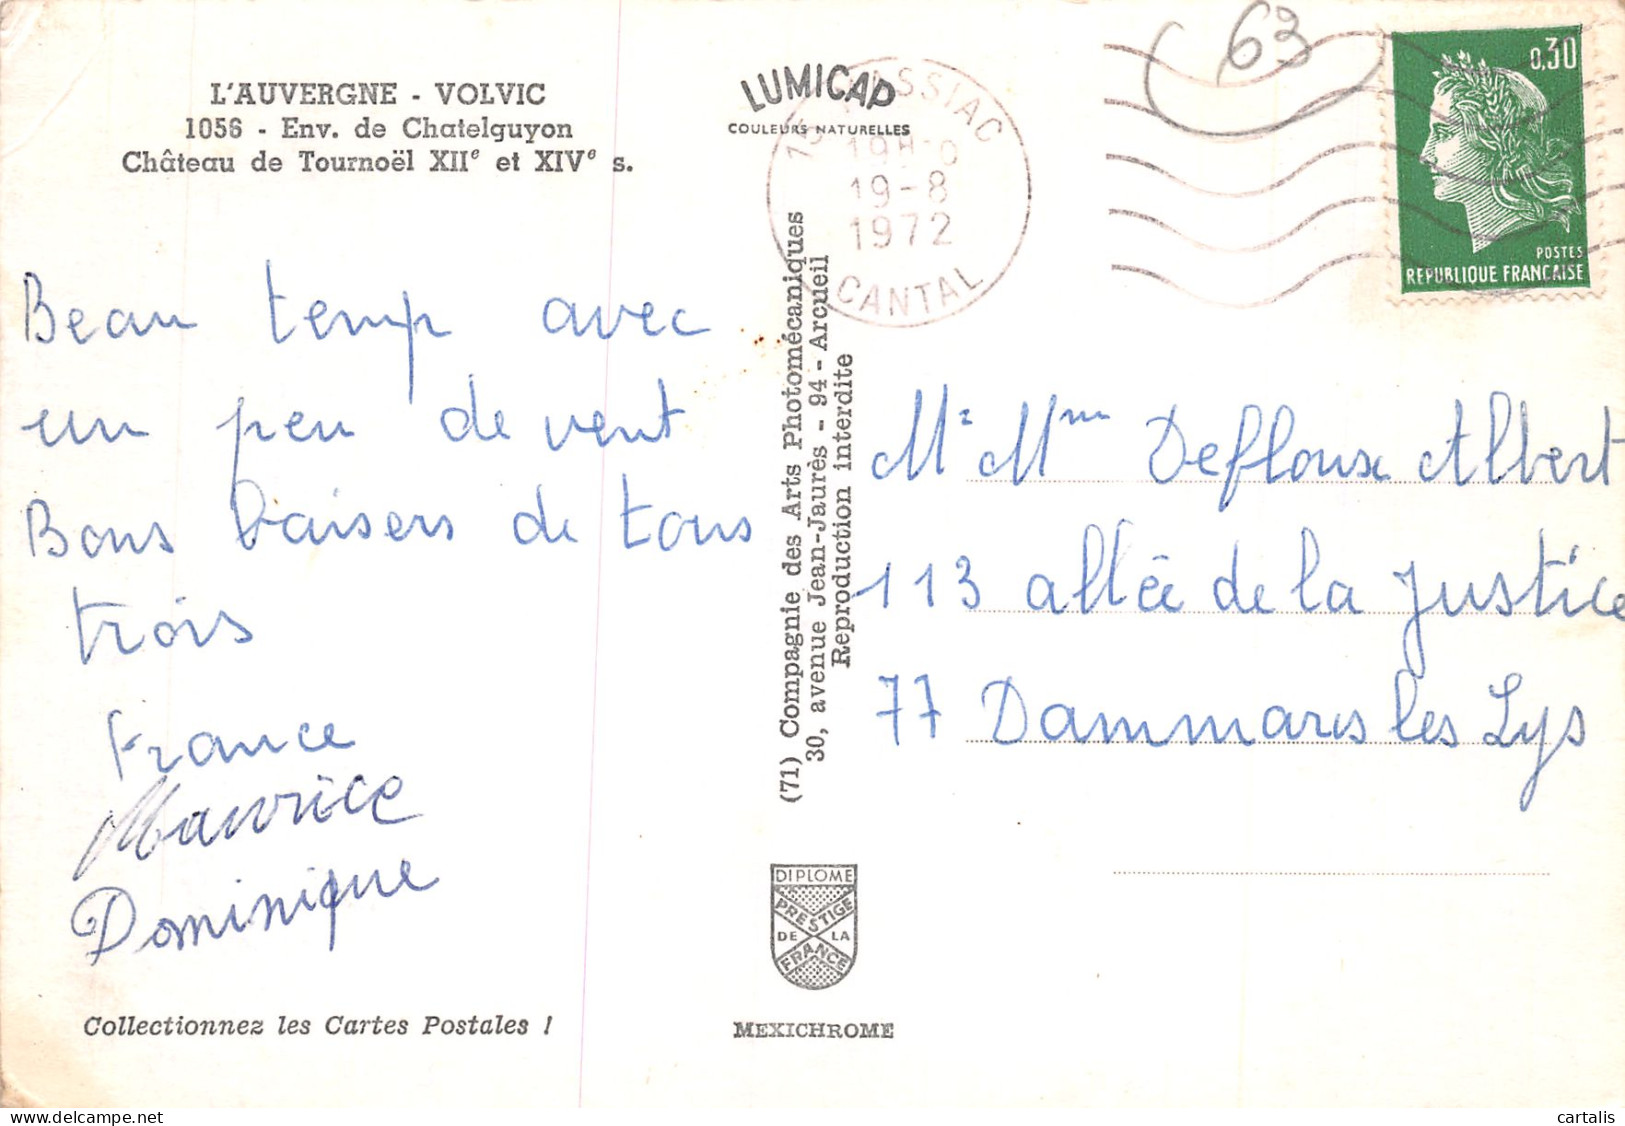 L'AUVERGNE - VOLVIC
1056 - Env. de Chatelguyon
Château de Tournoël XIIe et XIVe s.
Beau temp avec
un peu de vent
Bons baisers de tous
trois
France
Maurice
Dominique
Collectionnez les Cartes Postales !
LUMICAP
COULEURS NATURELLES
19-8
1972
CANTAL
(71) Compagnie des Arts Photomécaniques
30, avenue Jean-Jaurès - 94 - Arcueil
Reproduction interdite
DIPLOME
PRESTIGE
DE LA
FRANCE
MEXICHROME
63
0,30
POSTES
REPUBLIQUE FRANCAISE
Mr Mme Defloux Albert
113 allée de la Justice
77 Dammaris les Lys
cartalis